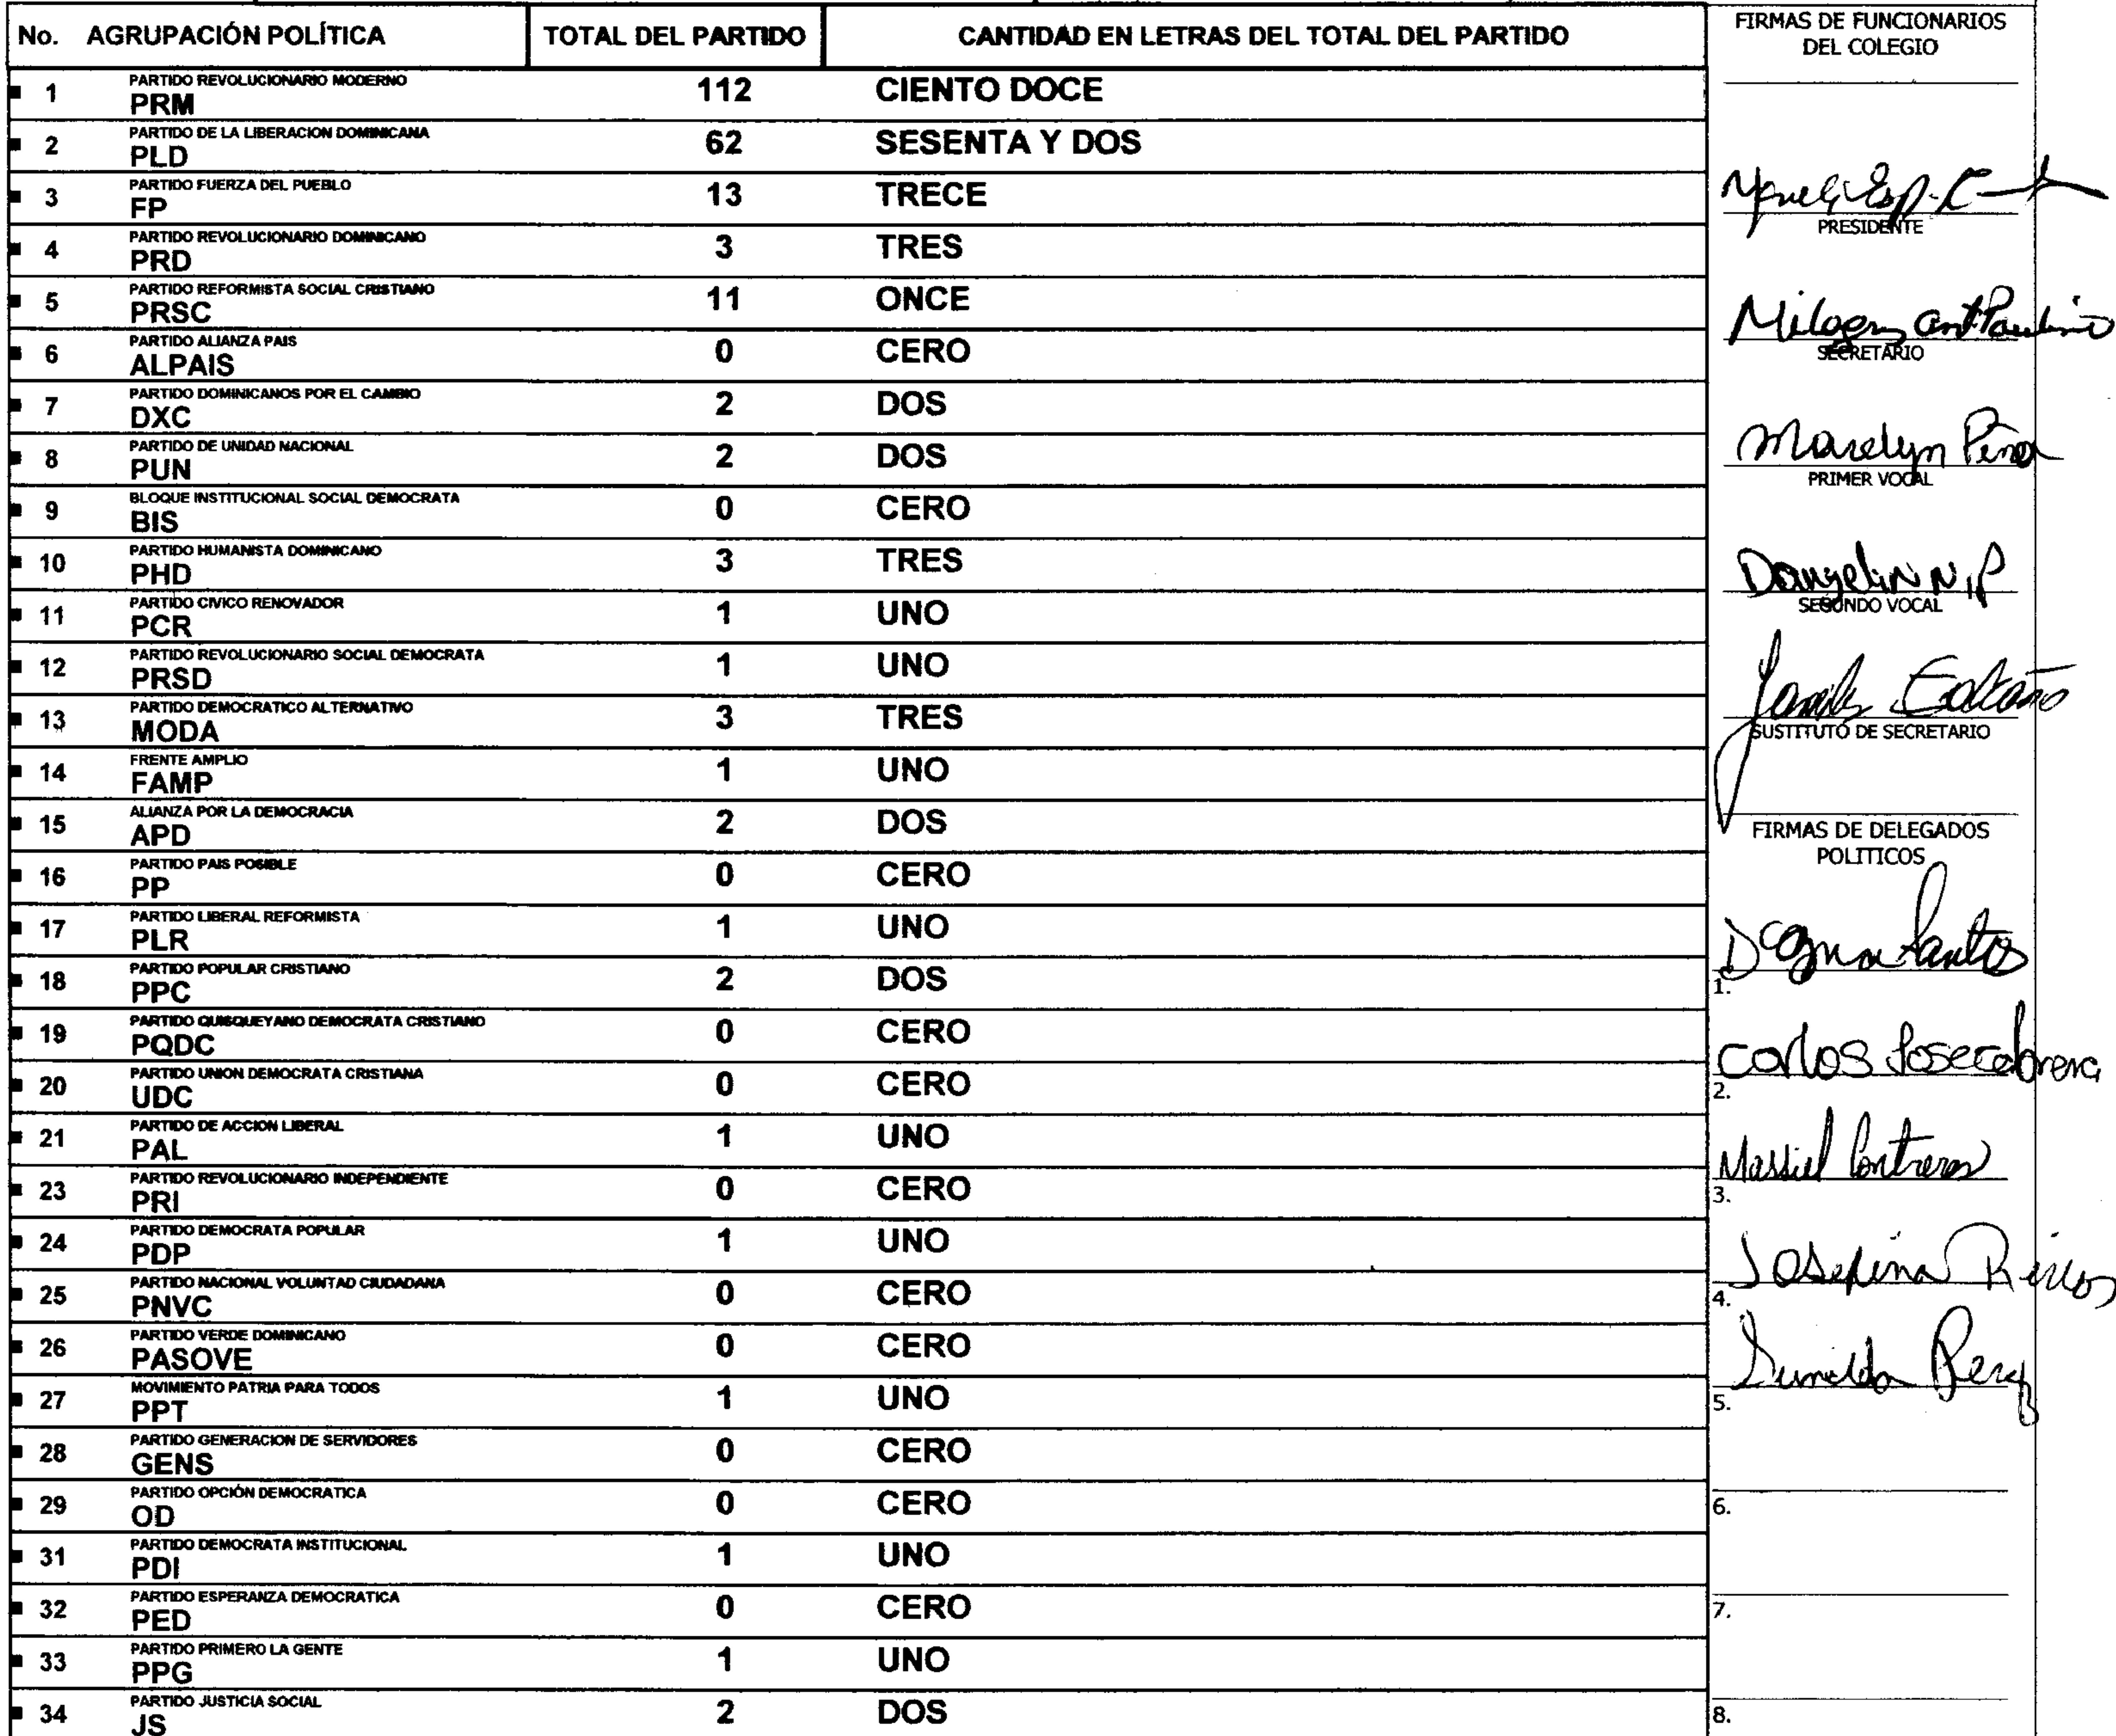 No. AGRUPACIÓN POLÍTICA TOTAL DEL PARTIDO CANTIDAD EN LETRAS DEL TOTAL DEL PARTIDO
PARTIDO REVOLUCIONARIO MODERNO
1 PRM 112 CIENTO DOCE
PARTIDO DE LA LIBERACION DOMINICANA
2 PLD 62 SESENTA Y DOS
PARTIDO FUERZA DEL PUEBLO
3 FP 13 TRECE
PARTIDO REVOLUCIONARIO DOMINICANO
4 PRD 3 TRES
PARTIDO REFORMISTA SOCIAL CRISTIANO
5 PRSC 11 ONCE
PARTIDO ALIANZA PAIS
6 ALPAIS 0 CERO
PARTIDO DOMINICANOS POR EL CAMBIO
7 DXC 2 DOS
PARTIDO DE UNIDAD NACIONAL
8 PUN 2 DOS
BLOQUE INSTITUCIONAL SOCIAL DEMOCRATA
9 BIS 0 CERO
PARTIDO HUMANISTA DOMINICANO
10 PHD 3 TRES
PARTIDO CIVICO RENOVADOR
11 PCR 1 UNO
PARTIDO REVOLUCIONARIO SOCIAL DEMOCRATA
12 PRSD 1 UNO
PARTIDO DEMOCRATICO ALTERNATIVO
13 MODA 3 TRES
FRENTE AMPLIO
14 FAMP 1 UNO
ALIANZA POR LA DEMOCRACIA
15 APD 2 DOS
PARTIDO PAIS POSIBLE
16 PP 0 CERO
PARTIDO LIBERAL REFORMISTA
17 PLR 1 UNO
PARTIDO POPULAR CRISTIANO
18 PPC 2 DOS
PARTIDO QUISQUEYANO DEMOCRATA CRISTIANO
19 PQDC 0 CERO
PARTIDO UNION DEMOCRATA CRISTIANA
20 UDC 0 CERO
PARTIDO DE ACCION LIBERAL
21 PAL 1 UNO
PARTIDO REVOLUCIONARIO INDEPENDIENTE
23 PRI 0 CERO
PARTIDO DEMOCRATA POPULAR
24 PDP 1 UNO
PARTIDO NACIONAL VOLUNTAD CIUDADANA
25 PNVC 0 CERO
PARTIDO VERDE DOMINICANO
26 PASOVE 0 CERO
MOVIMIENTO PATRIA PARA TODOS
27 PPT 1 UNO
PARTIDO GENERACION DE SERVIDORES
28 GENS 0 CERO
PARTIDO OPCIÓN DEMOCRATICA
29 OD 0 CERO
PARTIDO DEMOCRATA INSTITUCIONAL
31 PDI 1 UNO
PARTIDO ESPERANZA DEMOCRATICA
32 PED 0 CERO
PARTIDO PRIMERO LA GENTE
33 PPG 1 UNO
PARTIDO JUSTICIA SOCIAL
34 JS 2 DOS
FIRMAS DE FUNCIONARIOS
DEL COLEGIO
PRESIDENTE
Paulino
SECRETARIO
Marelyn Peña
PRIMER VOCAL
N.P
SEGUNDO VOCAL
SUSTITUTO DE SECRETARIO
FIRMAS DE DELEGADOS
POLITICOS
Santos
1.
Carlos Jose cabrera
2.
Massiel Contreras
3.
Josefina
4.
Perez
5.
6.
7.
8.